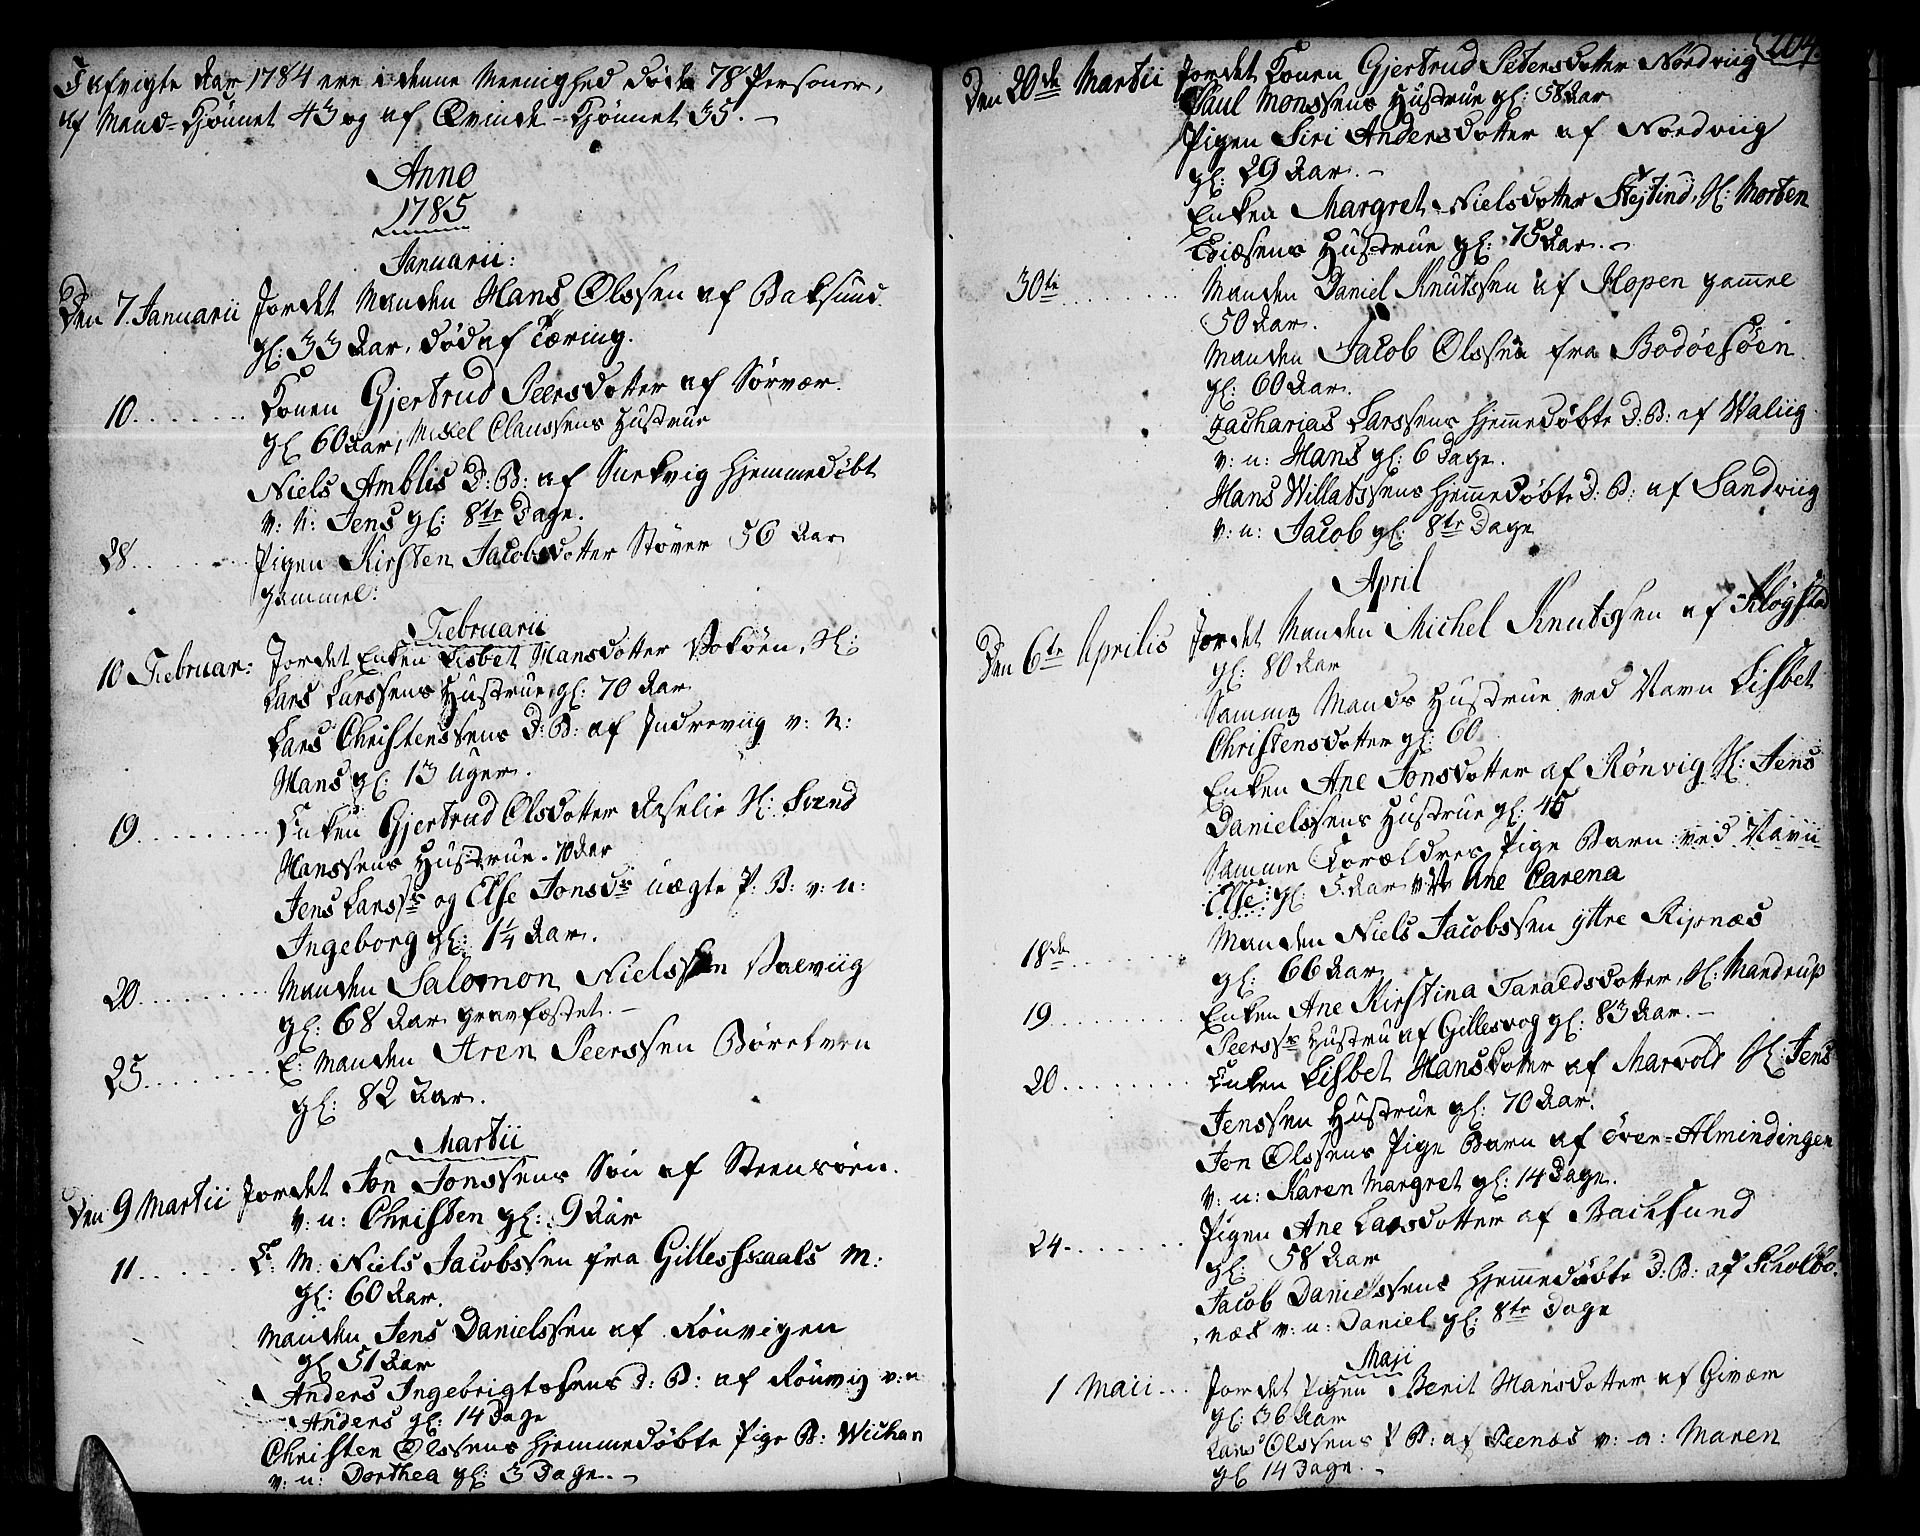 Jafvigte Aar 1784 ere i denne Meenighed døde 78 Personer,
af Mand-Kjønnet 43 og af Qvinde-Kjønnet 35.
Anno
1785
Januarii:
Den 7. Januarii Jordet Manden Hans Olssen af Baksund
gl: 33 Aar, død af Tæring.
10. Konen Gjertrud Peersdotter af Sörvær.
gl 60 Aar, Mickel Claussens Hustrue
Niels Amblis D: B: af Snekvig Hjemmedöbt
v: n: Jens gl: 8te Dage.
28. Pigen Kirsten Jacobsdotter Støver 56 Aar
gammel:
Februarii
10 Februar: Jordet Enken Lisbet Hansdotter Vokøen, Sl:
Lars Larssens Hustrue gl: 70 Aar
Lars Christenssens D: B: af Indreviig v: n:
Hans gl: 13 Uger.
19. Enken Gjertrud Olsdotter Sl: Svend
Hanssens Hustrue. 70 Aar
Jens Larss: og Else Jonsd: uægte P: B: v: n:
Ingeborg gl: 1 1/4 Aar.
20. Manden Salomon Nielssen Valviig
gl: 68 Aar gravfæstet.
25. E: Manden Aren Peerssen Börelven
gl: 82 Aar.
Martii
Den 9 Martii Jordet Jon Jonssens Sön af Steensöen.
v: n: Christen gl: 9 Aar
11. E: M: Niels Jacobssen fra Gillesskaals M:
gl: 60 Aar.
Manden Jens Danielssen af Rönvigen
gl 51 Aar
Anders Ingebrigtssens D: B: af Rönvig v: n
Anders gl: 14 Dage
Christen Olssens Hjemmedöbte Pige B: Wichan
v: n: Dorthea gl: 3 Dage.
204
Den 20de Martii Jordet Konen Gjertrud Petersdotter Nordviig
Paul Monssens Hustrue gl: 58 Aar
Pigen Siri Andersdotter af Nordviig
gl: 29 Aar.
Enken Margret Nielsdotter Stejtind, Sl: Morten
Hustrue gl: 75 Aar.
30te Manden Daniel Knutssen af Hopen gamle
50 Aar.
Manden Jacob Olssen fra Bodöesöen.
gl: 60 Aar.
Zacharias Larssens Hjemmedöbte D: B: af Waliig.
v: n: Hans gl: 6 Dage.
Hans Willatssens Hjemmedöbte D: B: af Sandviig
v: n: Jacob gl: 8te Dage
April
Den 6te Aprilis Jordet Manden Michel Knutssen af Klögstad
gl: 80 Aar
Samme Mands Hustrue ved Navn Lisbet
Christensdotter gl: 60
Enken Ane Jonsdotter af Rönvig Sl: Jens
Danielssens Hustrue gl: 46
Samme Forældres Pige Barn ved Navn
Else gl: 5 Aar Ane Carena
18de Manden Niels Jacobssen yttre Ripnæs
gl: 66 Aar
19. Enken Ane Kirstina Taraldsdotter, Sl: Mandrup
Peerss: Hustru af Gillesvog gl: 83 Aar.
20. Enken Lisbet Hansdotter af Marvold Sl: Jens
Jenssen Hustrue gl: 70 Aar.
Jon Olssens Pige Barn af över-Almindingen
v: n: Karen Margret gl: 14 Dage.
24. Pigen Ane Larsdotter af Backsund
gl: 58 Aar
Jacob Danielssens Hjemmedöbte D: B: af Skolbo.
næs v: n: Daniel gl: 8te Dage
Maji
1 Maii Jordet Pigen Berit Hansdotter af Givær
gl: 36 Aar
Lars Olssens P B: af Seenæs v: n: Maren
gl 14 Dage.